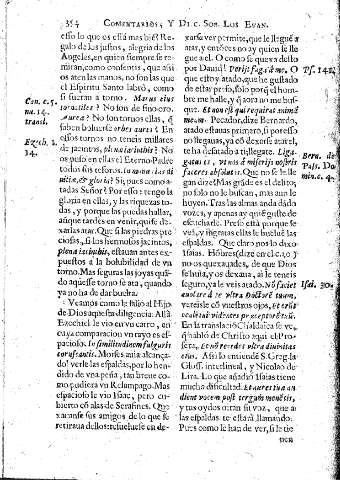 354 COMENTARIOS, Y DI. C. SOB. LOS EVAN.
esso lo que es essa mas bié? Re
galo de los justos, alegria de los
Angeles, en quien siempre se re
miraran, como consentis, que assi
os aten las manos, no son las que
el Espiritu Santo labrò, como
si fueran a torno. Manus eius
tornatiles? No son de fino oro.
Aurea? No son tornos ellas, q̃
saben bolverse orbes aurei? En
essos tornos no teneis millares
de jacintos, plena iacinthis? No
os puso en ellas el Eterno Padre
todos sus tesoros.
atadas Señor? Por esso: tengo la
gloria en ellas, y las riquezas to
das, y porque las puedas hallar,
aunque vengas tarde, quise de-
xarlas atar. Que si las piedras pre
ciosas, si los hermosos jacintos,
plena iacinthis, estauan antes ex
puestos a la bolubilidad de vn
torno. Mas seguras las joyas quá-
do aquesse torno se ata, quando
ya no ha de dar bueltas.
Veamos como le hizo al Hijo
de Dios aquesta diligencia. Allà
Ezechiel le vio en vn carro, en
cuya comparacion vn rayo es es-
pacioso. In similitudinem fulguris
coruscantis. Moises aun alcançà
do verle las espaldas, por lo hen-
dido de vna peña, tan breue co-
mo pudiera vn Relampago. Mas
espacioso le vio Isaac, pero cu-
bierto có alas de Serafines. Que
xaranse sus amigos de lo que se
retiraua dellos: resuelvese en de-
Can. c. 5.
nu. 14.
transl.
Ezech. 1.
14.
xarse ver permite, que le llegué a
atar, y entóces no ay quien se lle
gue a el. O como se quexa desto
por Dauid! Perijt fuga à me. O
que estoy atado, que he gustado
de estar preso, solo porq̃ el hom-
bre me halle, y q̃ aora no me bus-
que. Et non est qui requirat animā
meam. Pecador, dize Bernardo,
atado estauas primero, si por esso
no llegauas, ya có dexarse atar el,
te ha desatado a ti, llegate. Liga
gatus es, vt nos à miserijs nostris
faceres absolutos. Que no se lle-
gan dize? Mas grãde es el delito;
no solo no le buscan, mas aun le
huyen. Tras las almas anda dãdo
vozes, y apenas ay quié guste de
escucharle. Preso està porque se
veã, y ingratas ellas le huelue las
espaldas. Que claro nos lo dixo
Isaias. Hóbres (dize en el c. 30.) y
no os quexauades, de que Dios
se huía, y os dexaua, ai le teneis
seguro, ya le veis atado. Nó faciet
auolare à te vltra Doctorē tuum,
vereisle có vuestros ojos, Et erūt
oculi tui videntes præceptorē tuū.
En la translació Chaldaica se ve,
q̃ hablò de Christo aqui el Pro-
feta, Et nō recedet vltra diuinitas
eius. Assi lo entiende S. Greg. la
Gloss. interlineal, y Nicolao de
Lira. Lo que añadió Isaias tiene
mucha dificultad. Et aures tuæ au
dient vocem post tergum monētis,
y tus oydos oiran su voz, que a
las espaldas te estarà llamando.
Pues como le han de ver, si le tie
nen
Ps. 141.
Bern. de
Pass. Do
min. c. 4.
Isai. 30.